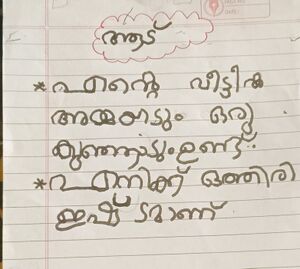 ആട്
* എന്റെ വീട്ടിൽ
അമ്മയാടും ഒരു
കുഞ്ഞാടും ഉണ്ട്.
* എനിക്ക് ഒത്തിരി
ഇഷ്ടമാണ്